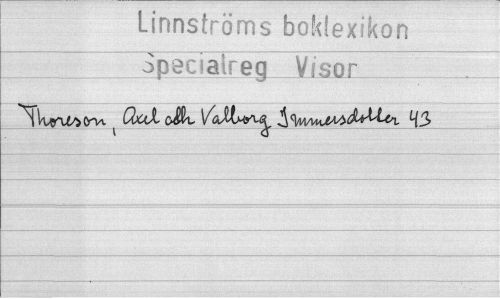 Linnströms boklexikon
Specialreg Visor
Thoreson, Axel och Valborg Immersdotter 43